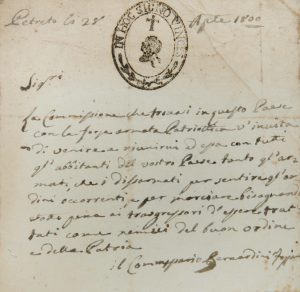 Petreto li 28 Aple 1800
IN HOC SIGNO VINCES
Sigri
La Commissione che trovasi in questo Paese
con la forza armata Patriotica v'invita
di venire a riunirvi ad essa con tutti
gl'abbitanti del vostro Paese tanto gl'ar-
mati, che i disarmati per sentire gl'or-
dini occorrenti, e per marciare bisognando
sotto pena ai trasgressori d'essere trat-
tati come nemici del buon ordine
e della Patria
il Commissario Bernardini